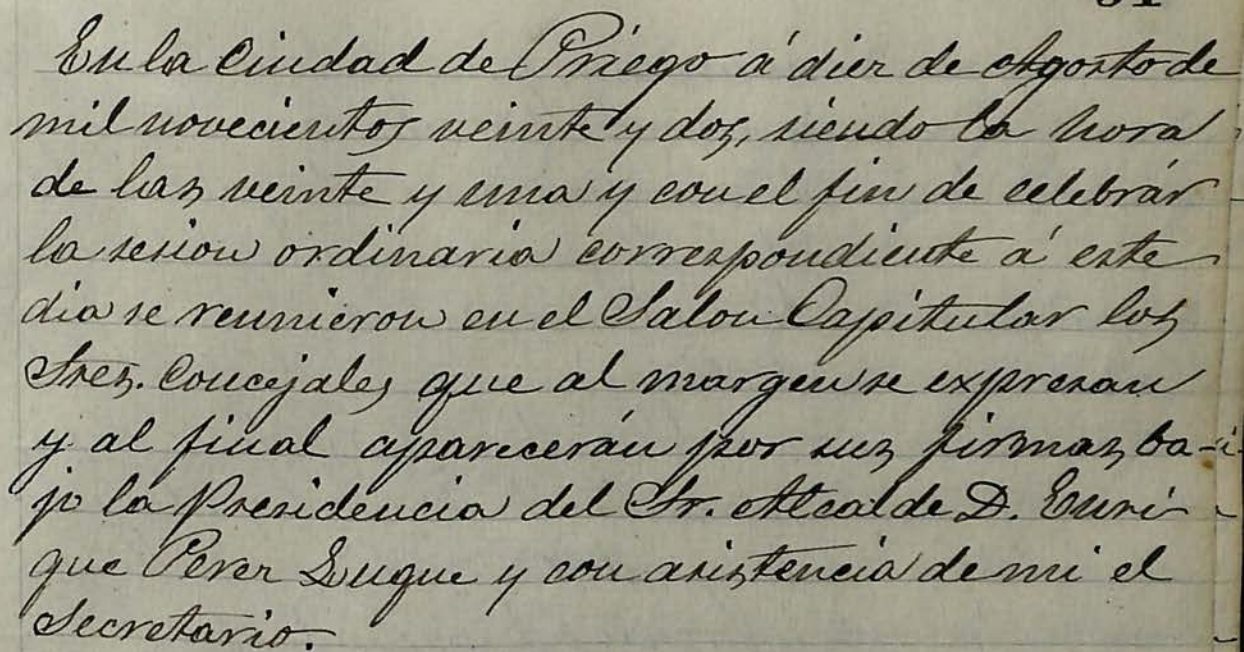 En la Ciudad de Priego á diez de Agosto de
mil novecientos veinte y dos, siendo la hora
de las veinte y una y con el fin de celebrár
la sesion ordinaria correspondiente á este
dia se reunieron en el Salon Capitular los
Sres. Concejales que al margen se expresan
y al final aparecerán por sus firmas, ba-
jo la Presidencia del Sr. Alcalde D. Enri-
que Perez Luque y con asistencia de mi el
Secretario.